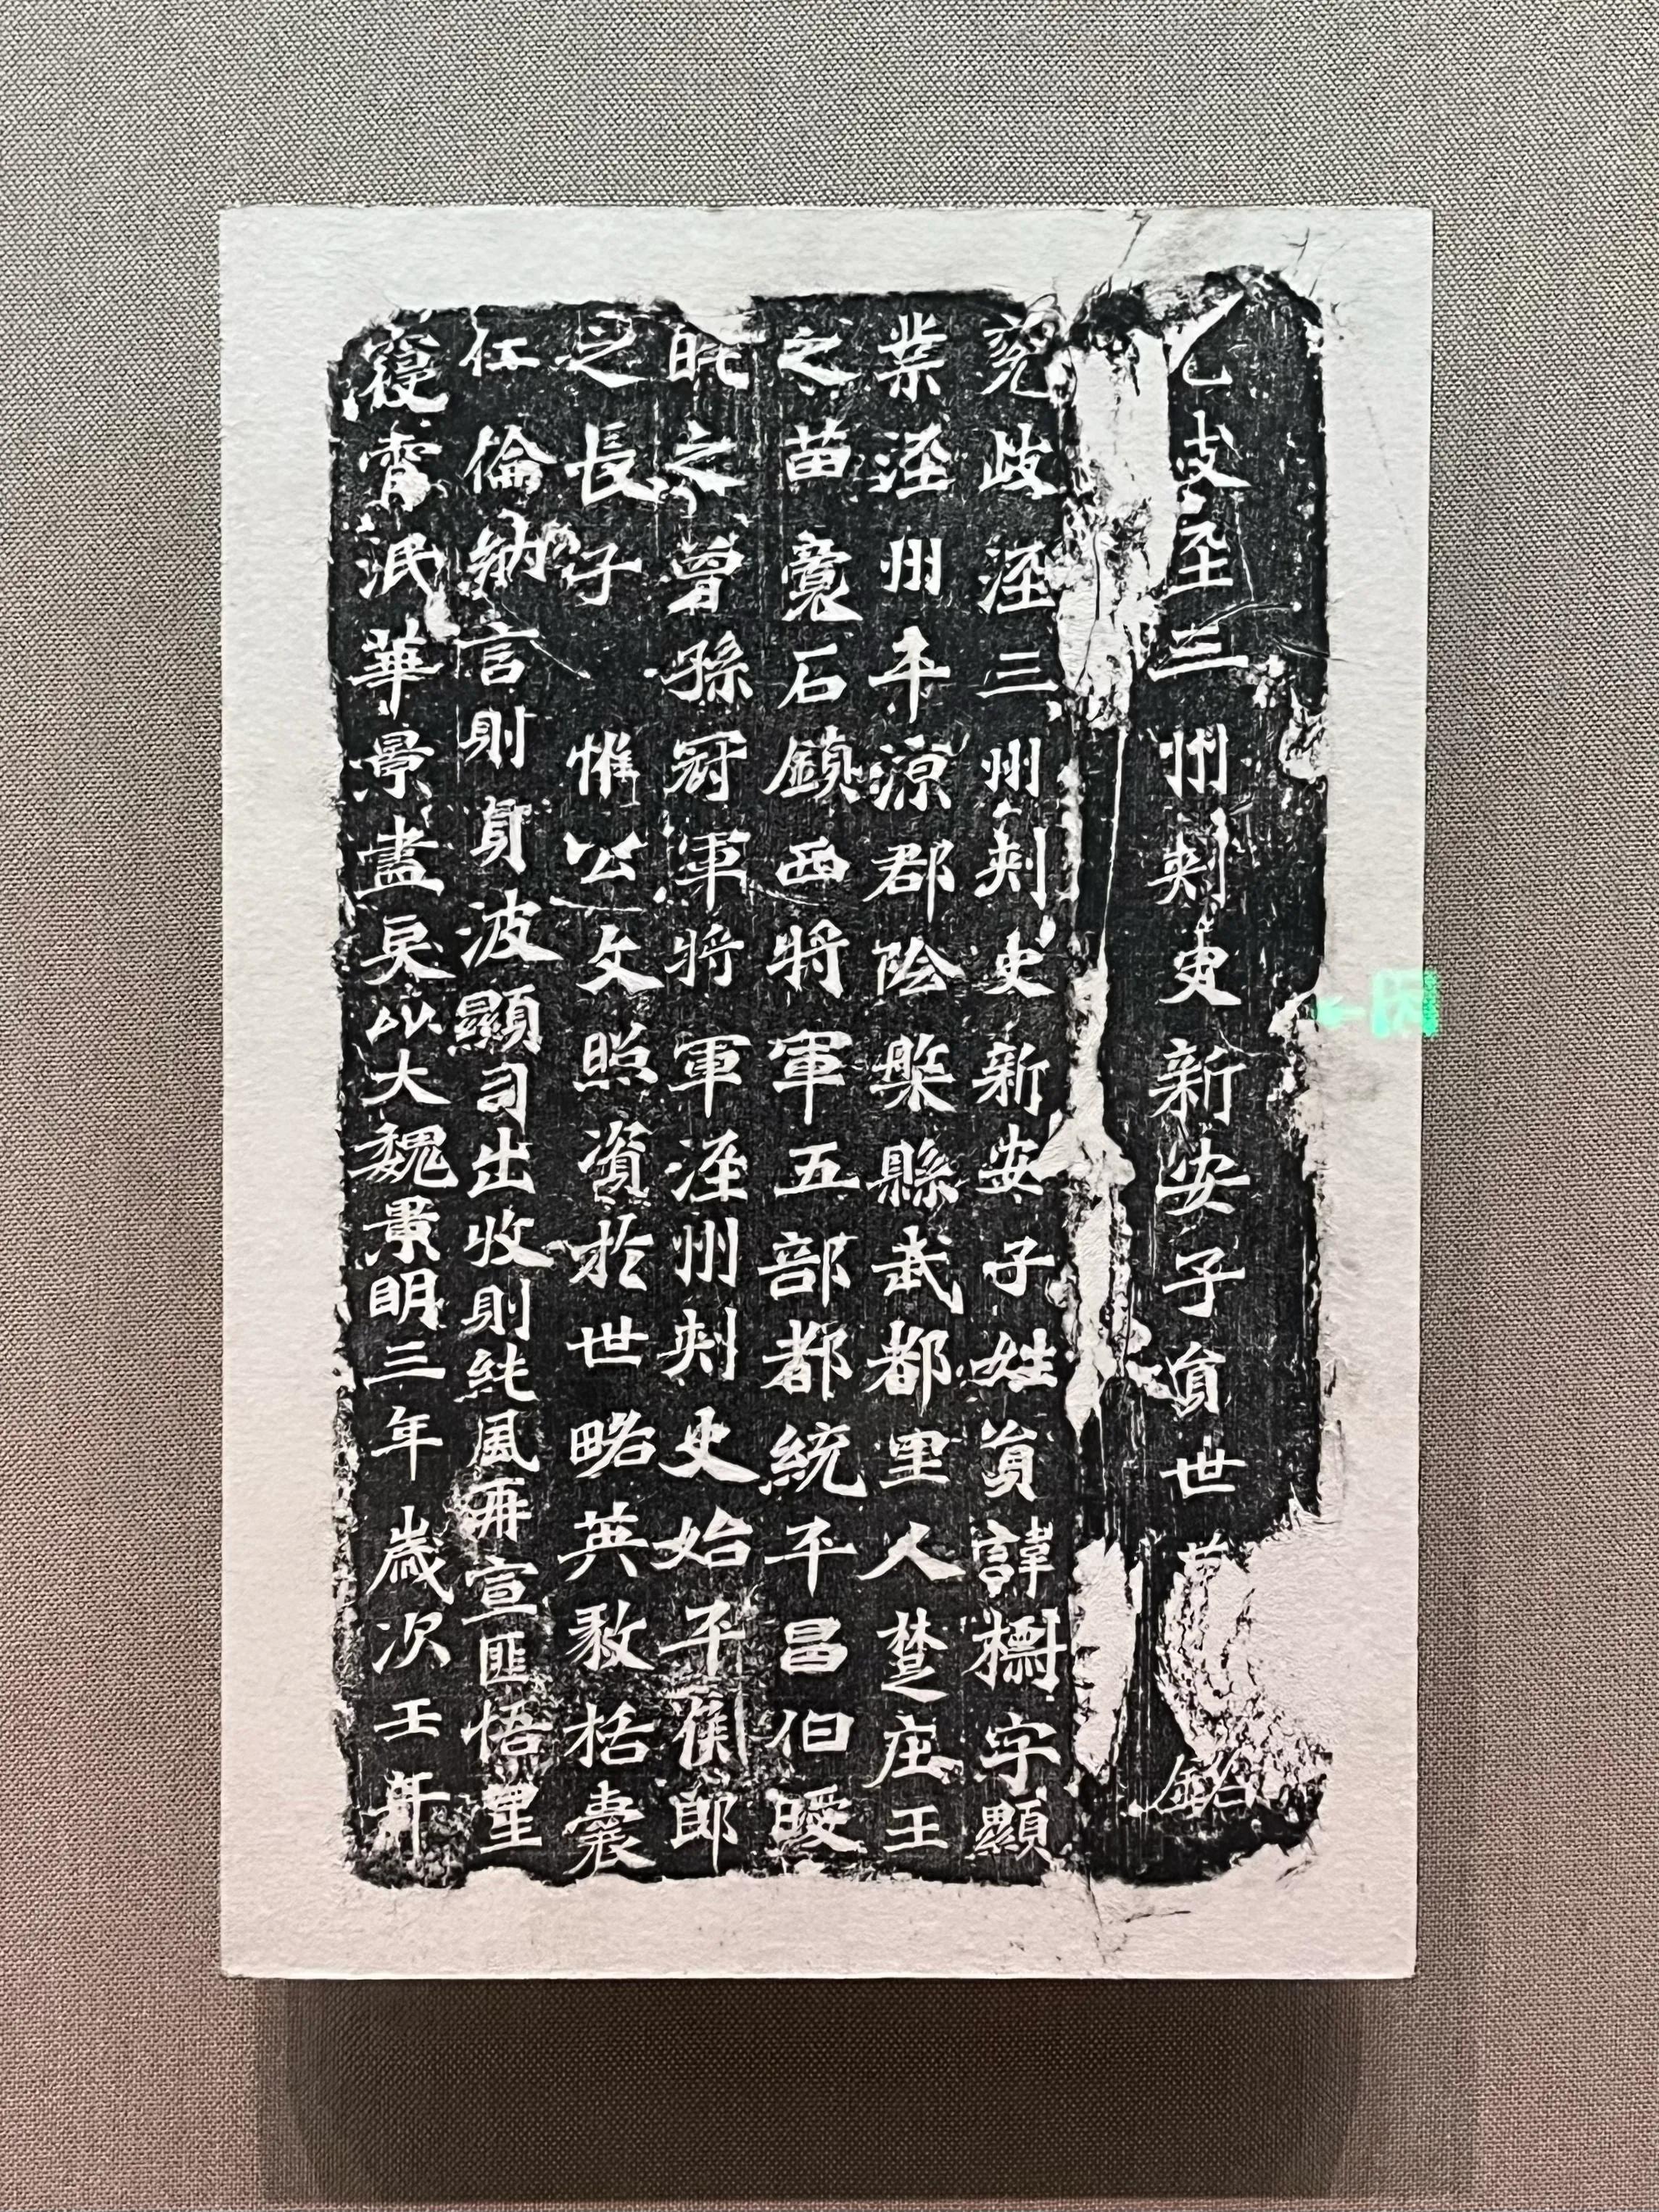 岐涇三州刺史新安子員世墓銘
兗岐涇三州刺史新安子姓員諱標字顯
業涇州平涼郡陰槃縣武都里人楚庄王
之苗裔石鎮西將軍五部都統平昌伯曖
之曾孫冠軍將軍涇州刺史始平侯郎
之長子惟公文照資於世略英敦括囊
仁倫納言則貞波顯司出收則純風再宣匪悟星
寢宵泯華景盡戾以大魏景明三年歲次壬午